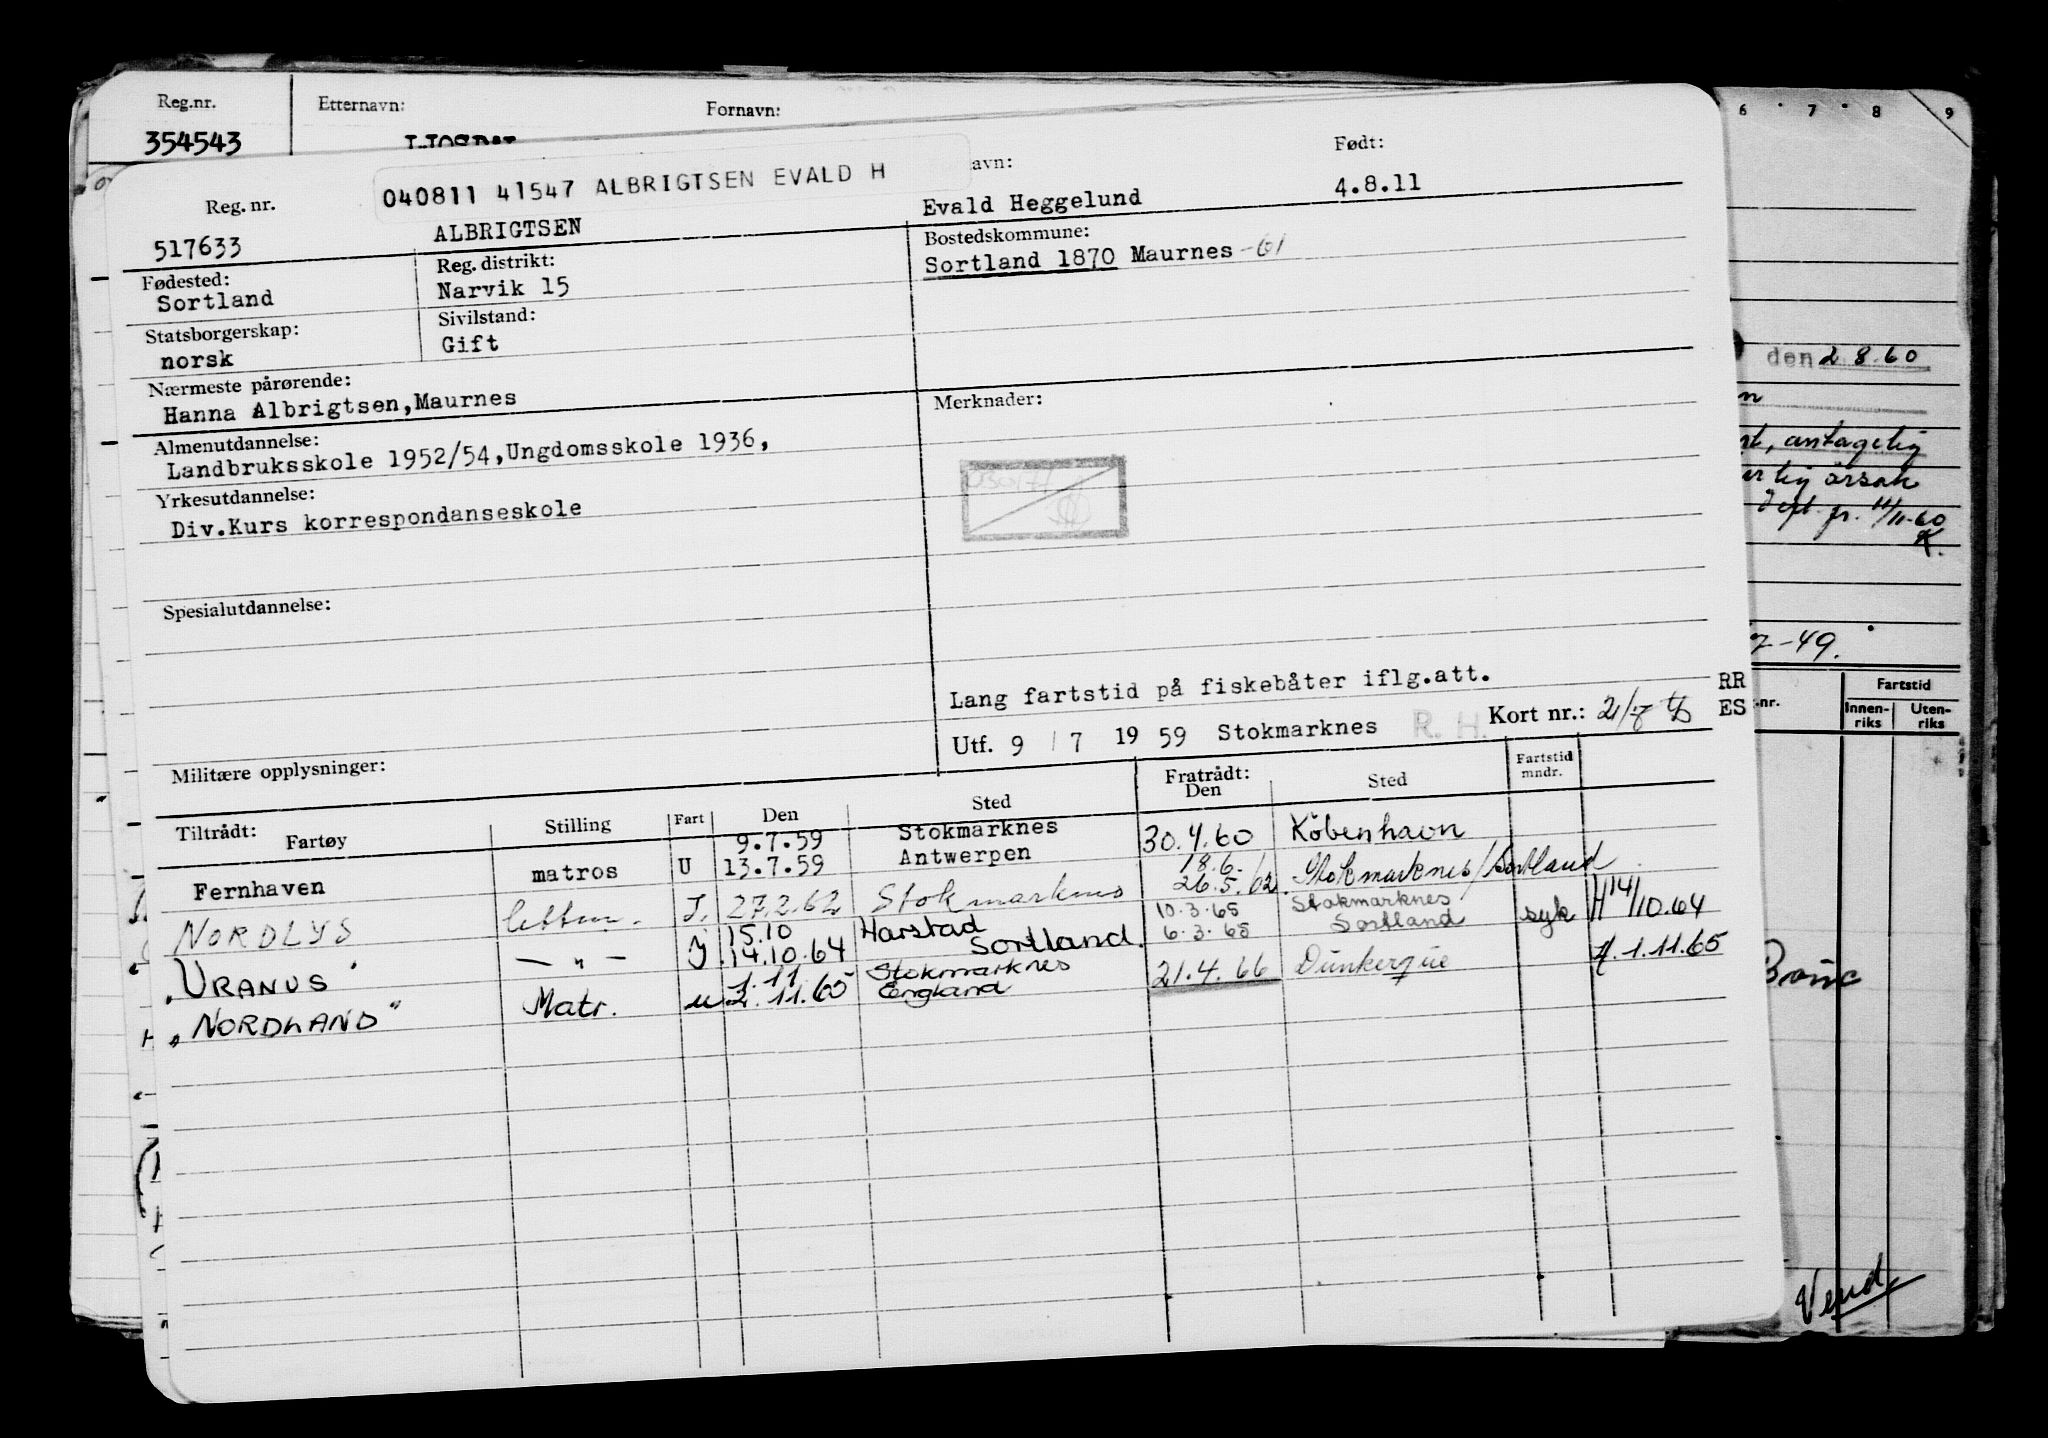 Reg.nr. Etternavn: Fornavn:
354543
6 7 8 9
040811 41547 ALBRIGTSEN EVALD H
Reg. nr. avn: Født:
517633 ALBRIGTSEN Evald Heggelund 4.8.11
Fødested: Reg. distrikt: Bostedskommune:
Sortland Narvik 15 Sortland 1870 Maurnes -61
Statsborgerskap: Sivilstand:
norsk Gift
Nærmeste pårørende:
Hanna Albrigtsen, Maurnes
Merknader:
Almenutdannelse:
Landbruksskole 1952/54, Ungdomsskole 1936,
Yrkesutdannelse:
Div.Kurs korrespondanseskole
Spesialutdannelse:
Lang fartstid på fiskebåter iflg.att.
Utf. 9 / 7 19 59 Stokmarknes R. H. Kort nr.:
RR
ES
Militære opplysninger:
Tiltrådt: Fartøy Stilling Fart Den Sted Fratrådt: Den Sted Fartstid mndr.
9.7.59 Stokmarknes
Fernhaven matros U 13.7.59 Antwerpen 30.4.60 København
18.6.
NORDLYS I. 27.2.62 Stokmarknes 26.5.62. Stokmarknes/Sortland
15.10 Harstad 10.3.65 Stokmarknes
"URANUS" — " — I 14.10.64 Sortland. 6.3.65 Sortland syk H 14/10.64
1.11 Stokmarknes
"NORDLAND" Matr. u 2.11.65 England 21.4.66 Dunkerque H. 1.11.65
den 2.8.60
antagelig
årsak
fr. 11/11-60
K.
-49.
nr. Fartstid
Innen-
riks Uten-
riks
Vend